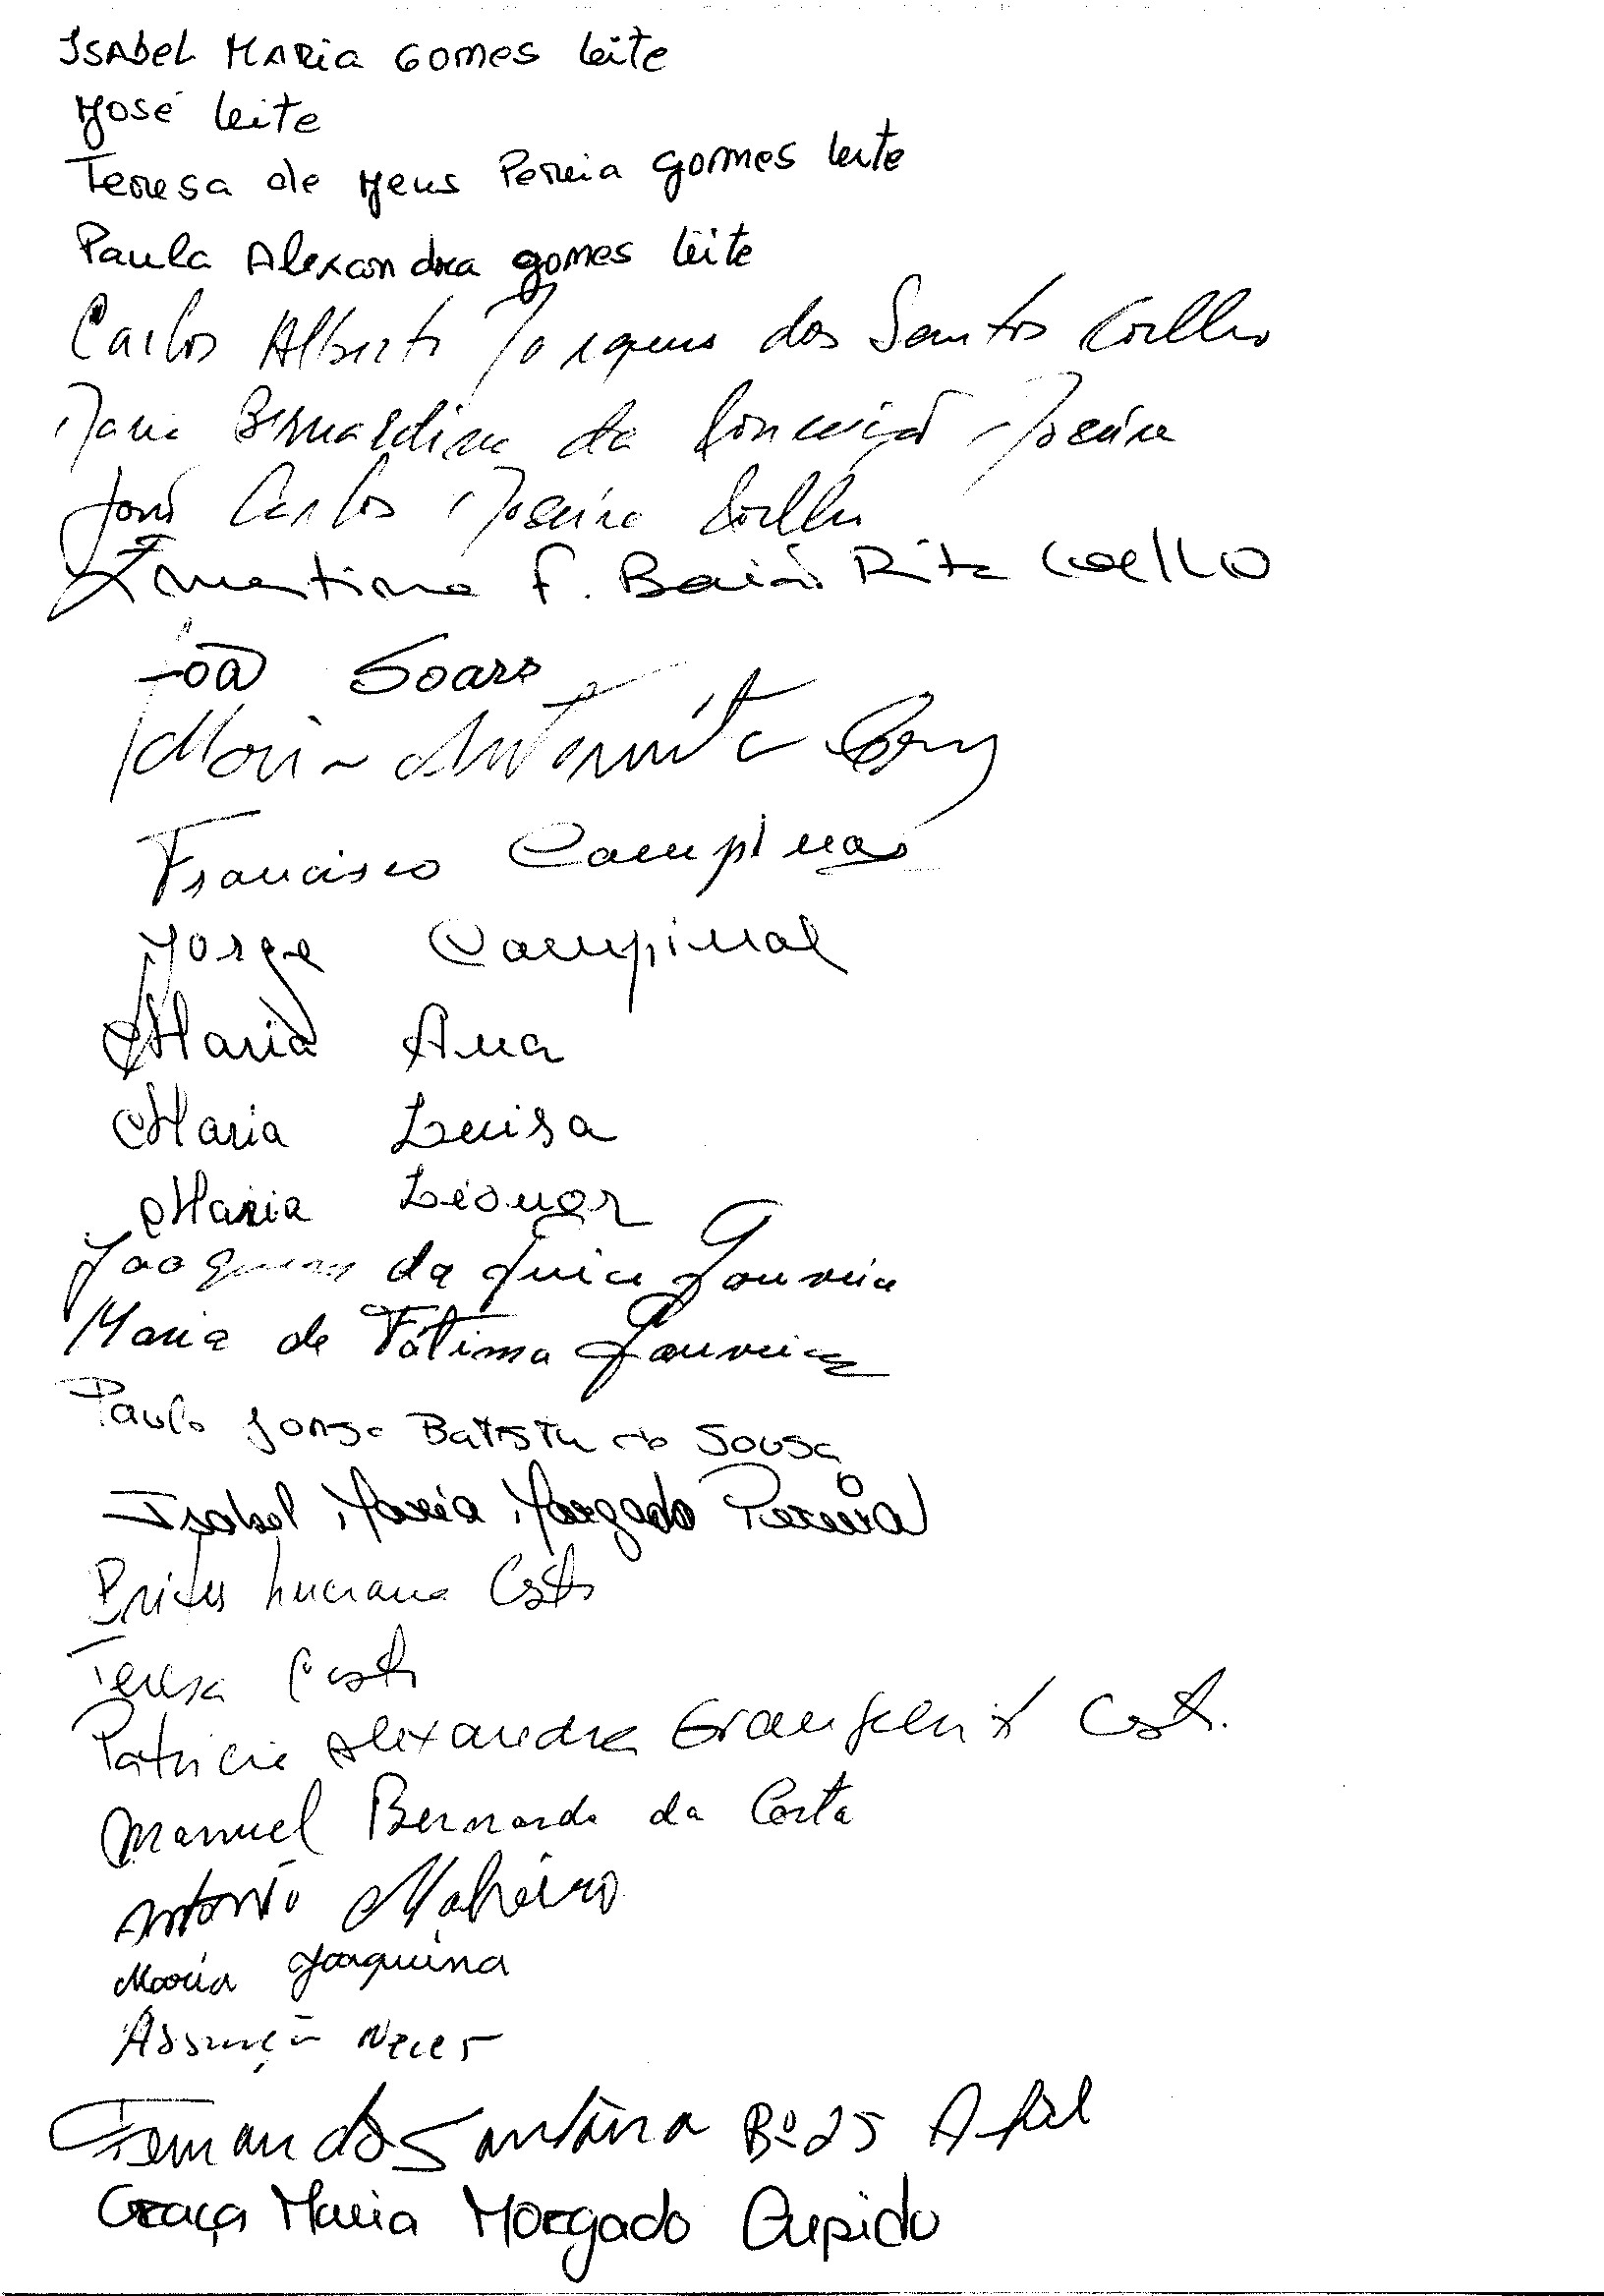 Isabel Maria Gomes Leite
José Leite
Teresa de Jesus Pereia Gomes Leite
Paula Alexandra Gomes Leite
Carlos Alberto Marques dos Santos Coelho
Maria Bernardina da Conceição Moreira
José Carlos Moreira Coelho
Ernestina F. Baião Rita Coelho
João Soares
Maria Antonieta
Francisco Campinas
Jorge Campinas
Maria Ana
Maria Luisa
Maria Lionor
Joaquim da Gouveia
Maria de Fátima Gouveia
Paulo Jorge Batista de Sousa
Isabel Maria Morgado Pereira
Brites Luciana Costa
Teresa Costa
Patricia Alexandra Evangelista Costa
Manuel Bernardo da Costa
António Malheiro
Maria Joaquina
Assunção Neves
Fernando Santana Bº 25 Abril
Graça Maria Morgado Cupido